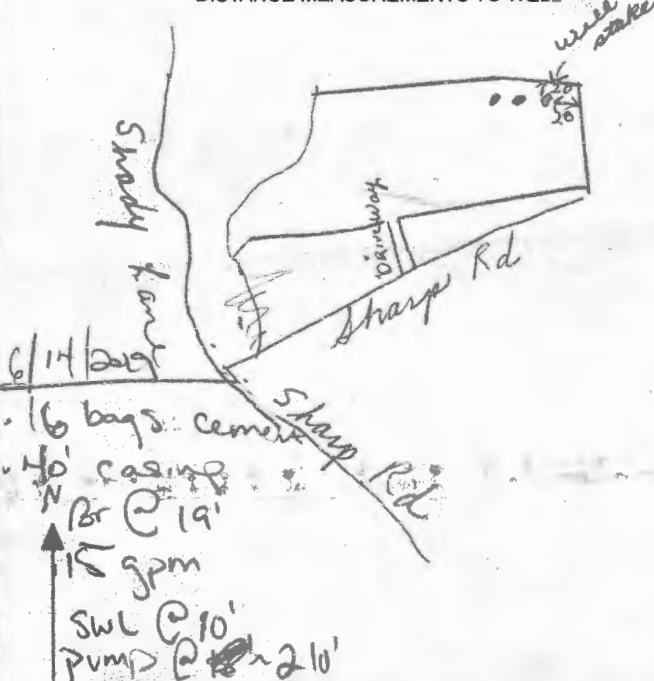 DISTANCE MEASUREMENTS TO WELL
well
stake
20
20
Shady Lane
Driveway
Sharp Rd
Sharp Rd
6/14/
16 bags cement
40' casing
N
Br @ 19'
15 gpm
SWL @ 10'
pump @ ~ 210'